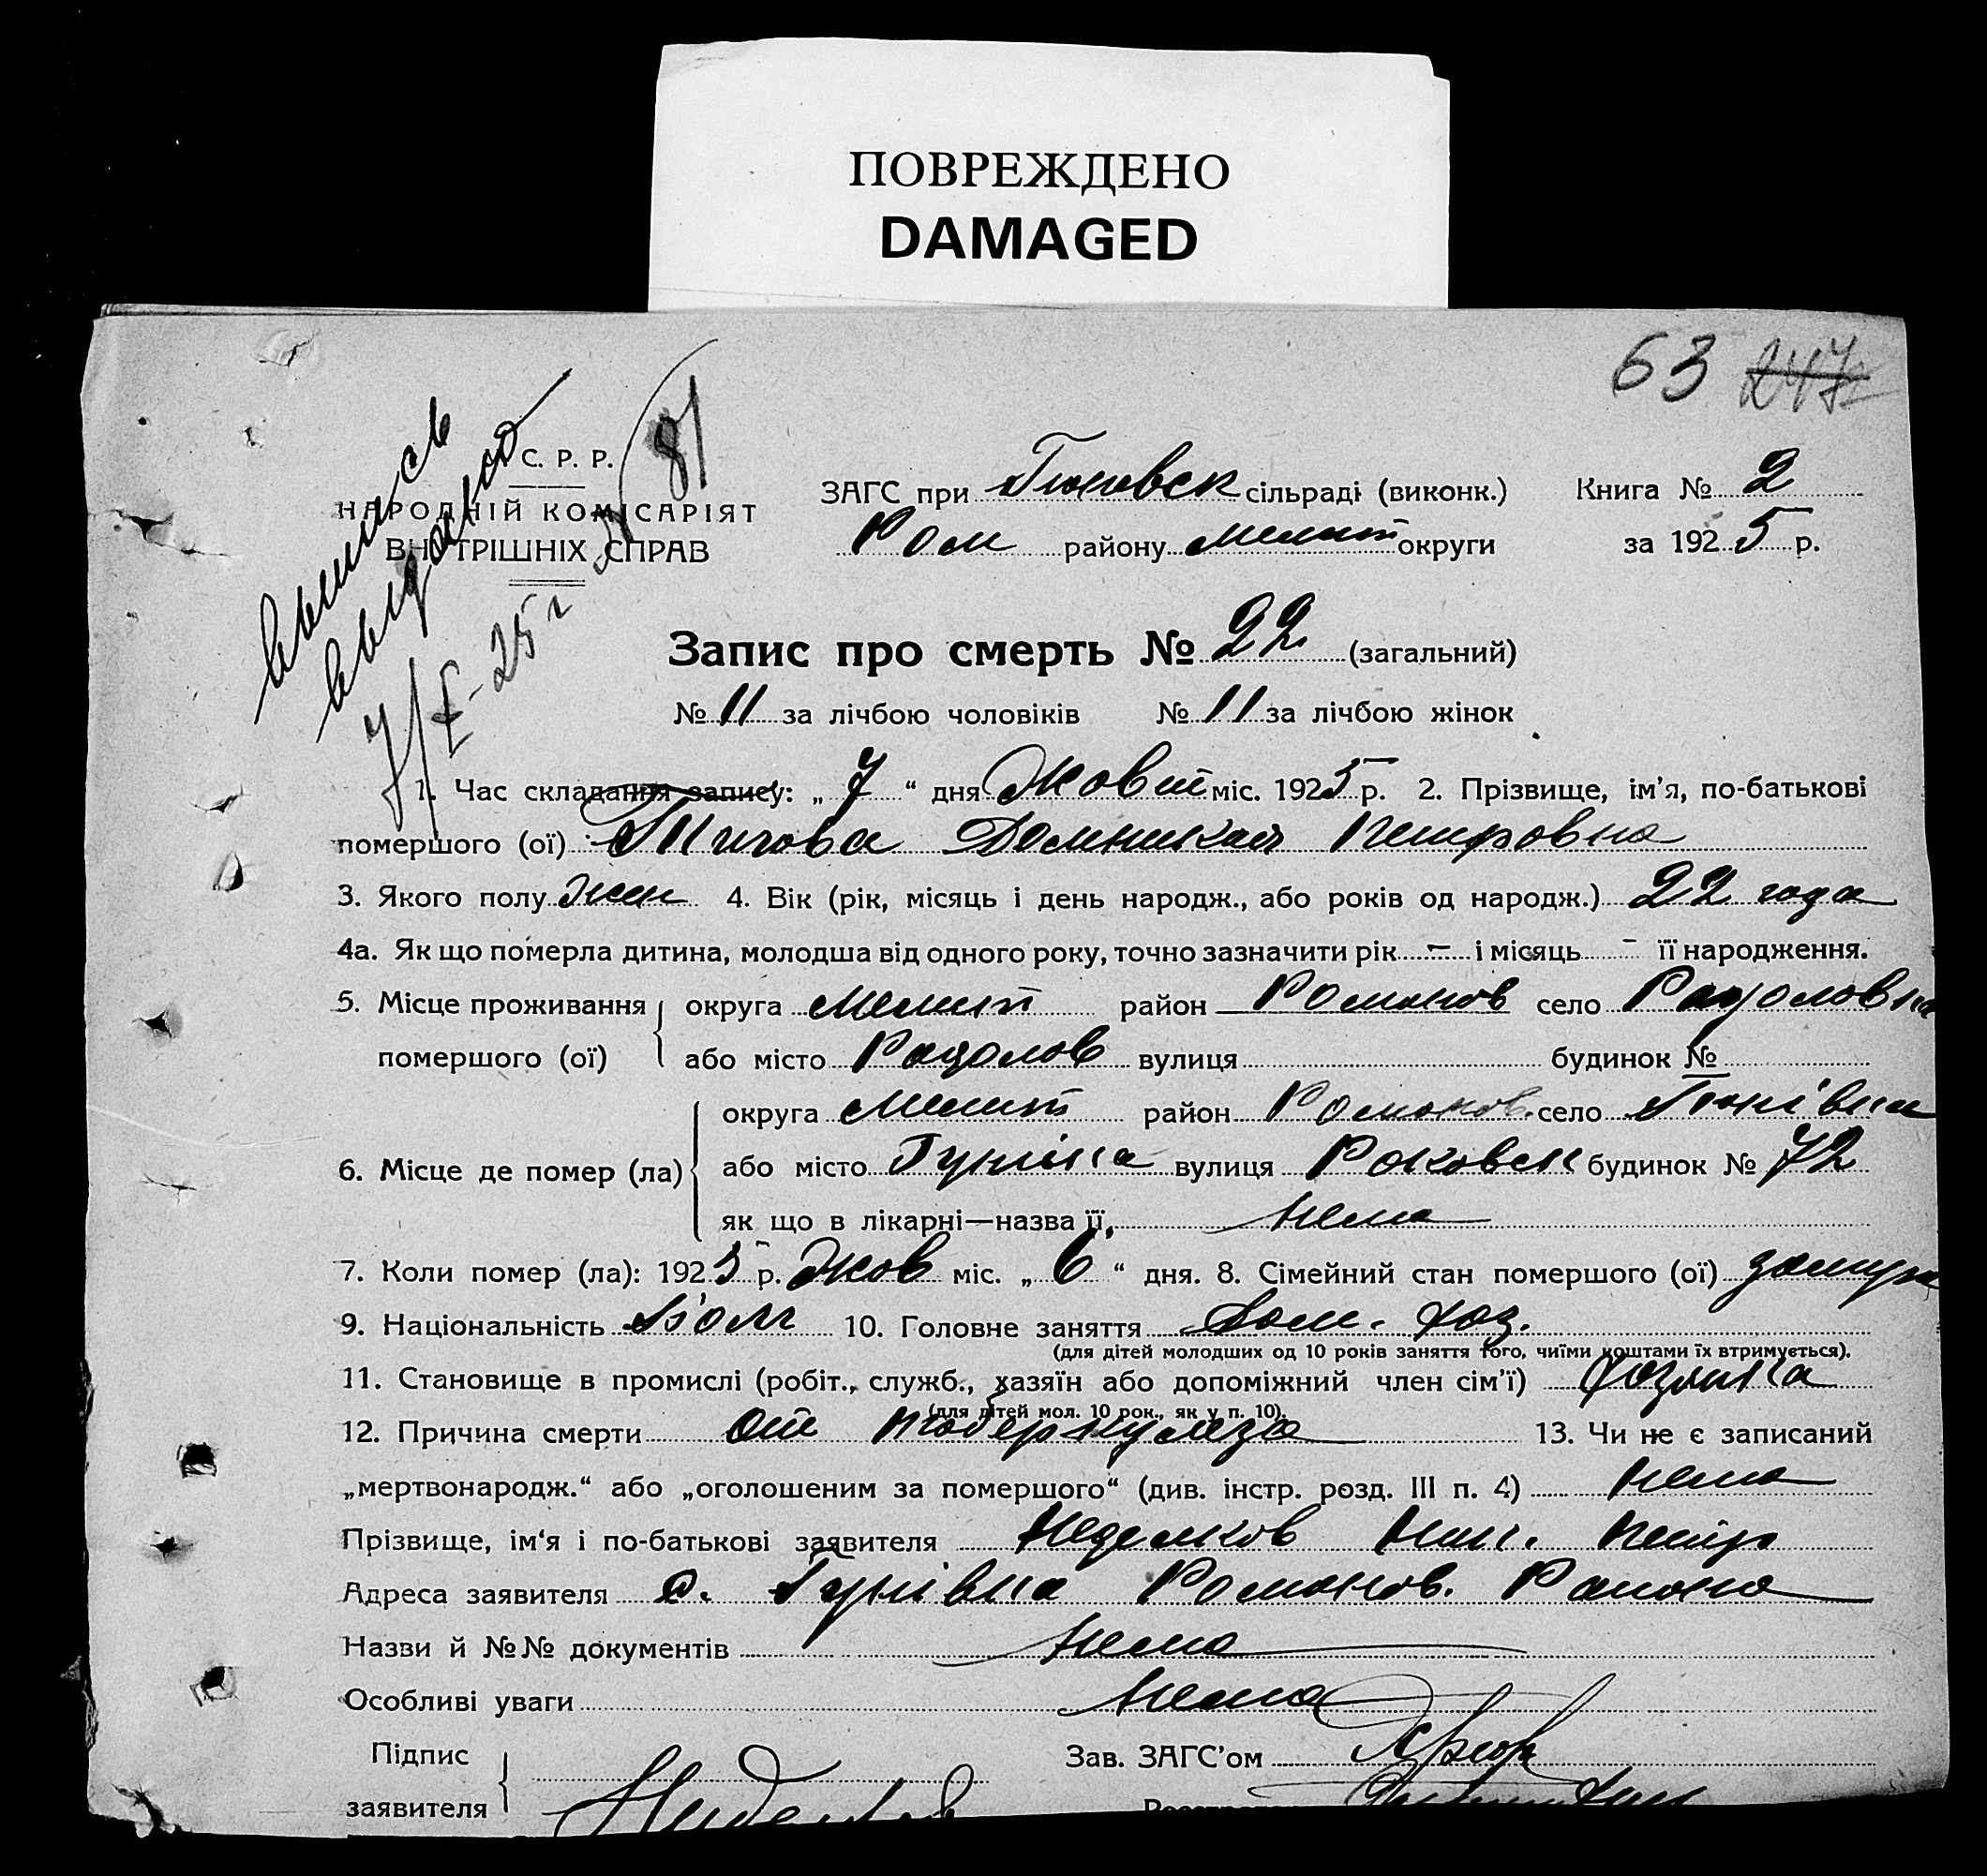 ПОВРЕЖДЕНО
DAMAGED
63 247
выпись
выдана
7/X-25 г
81
С. Р. Р.
НАРОДНІЙ КОМІСАРІЯТ
ВНУТРІШНІХ СПРАВ
ЗАГС при Гюновск сільраді (виконк.) Книга № 2
Ром району Мелит округи за 1925 р.
Запис про смерть № 22 (загальний)
№ 11 за лічбою чоловіків № 11 за лічбою жінок
1. Час складання запису: „ 7 “ дня Жовт міс. 1925 р. 2. Прізвище, ім'я, по-батькові
помершого (ої) Домникия Петровна
3. Якого полу жен 4. Вік (рік, місяць і день народж., або років од народж.) 22 года
4а. Як що померла дитина, молодша від одного року, точно зазначити рік – і місяць – її народження.
5. Місце проживання округа Мелит район Романов село Радоловка
помершого (ої) або місто Радолов вулиця будинок №
округа Мелит район Романов. село Гюнівка
6. Місце де помер (ла) або місто Гунівка вулиця будинок № 72
як що в лікарні—назва її, нема
7. Коли помер (ла): 1925 р. Жов міс. „ 6 “ дня. 8. Сімейний стан помершого (ої) замуж
9. Національність Болг 10. Головне заняття Дом. хоз.
(для дітей молодших од 10 років заняття того, чиїми коштами їх втримується).
11. Становище в промислі (робіт., служб., хазяїн або допоміжний член сім'ї) хозяйка
(для дітей мол. 10 рок., як у п. 10).
12. Причина смерти от тоберкулеза 13. Чи не є записаний
„мертвонародж.“ або „оголошеним за помершого“ (див. інстр. розд. III п. 4) нема
Прізвище, ім'я і по-батькові заявителя Неделков Ник. Петр
Адреса заявителя с. Гунівка Романов. Района
Назви й №№ документів нема
Особливі уваги нема
Підпис Зав. ЗАГС'ом
заявителя Неделков